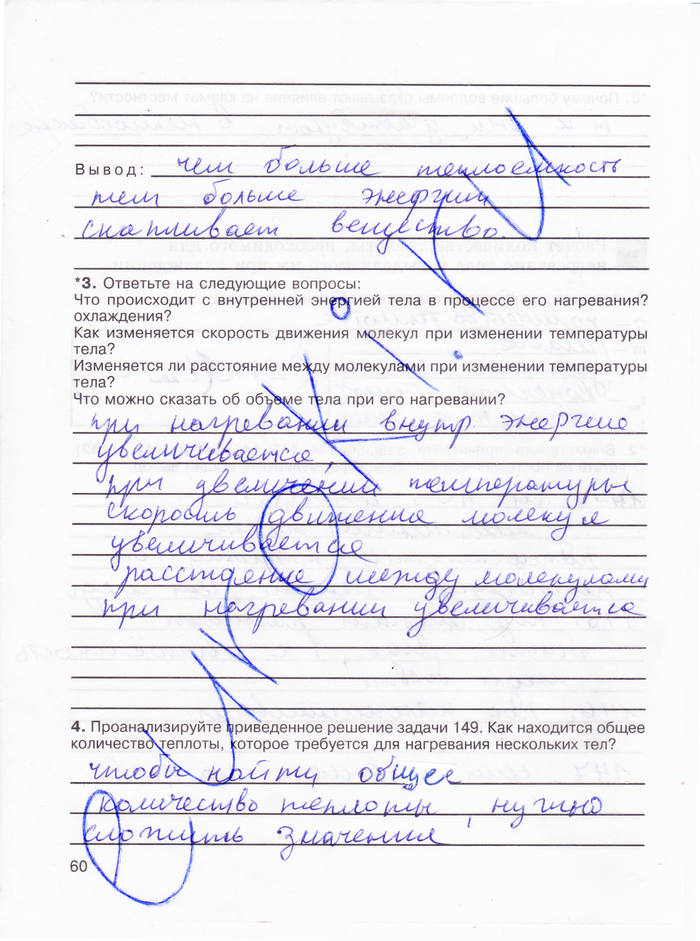 Вывод: чем больше теплоемкость
тем больше энергии
скапливает вещество.
*3. Ответьте на следующие вопросы:
Что происходит с внутренней энергией тела в процессе его нагревания?
охлаждения?
Как изменяется скорость движения молекул при изменении температуры
тела?
Изменяется ли расстояние между молекулами при изменении температуры
тела?
Что можно сказать об объеме тела при его нагревании?
при нагревании внутр. энергия
увеличивается,
при увеличении температуры
скорость движения молекул
увеличивается
расстояние между молекулами
при нагревании увеличивается
4. Проанализируйте приведенное решение задачи 149. Как находится общее
количество теплоты, которое требуется для нагревания нескольких тел?
чтобы найти общее
количество теплоты, нужно
сложить значения
60